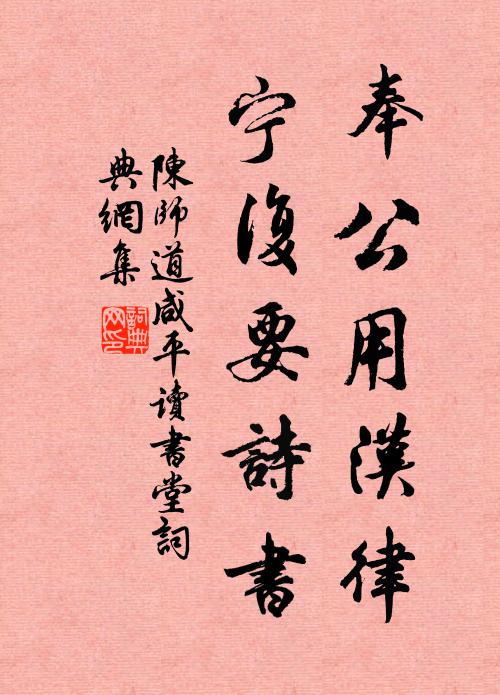 奉公用漢律
宁復要詩書
陳師道咸平讀書堂詞
典網集
詞典
网印